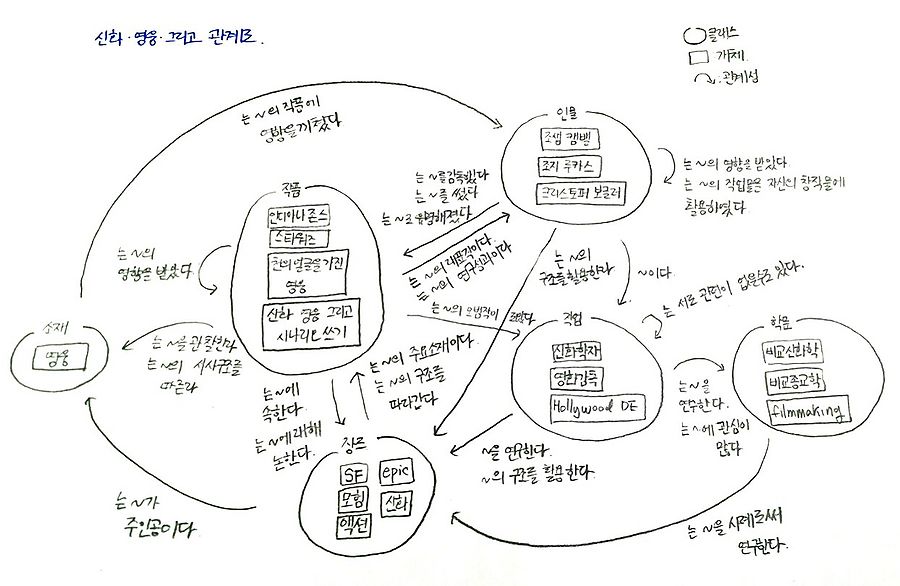 신화·영웅·그리고 관계도.
클래스
개체.
관계성
는 ~의 작품에
영향을 끼쳤다
인물
조셉 캠벨
조지 루카스
크리스토퍼 보글러
는 ~의 영향을 받았다.
는 ~의 작업물을 자신의 창작물에
활용하였다
는 ~를 감독했다
는 ~를 썼다
는 ~로 유명해졌다
작품
인디아나 존스
스타워즈
천의 얼굴을 가진
영웅
신화 영웅 그리고
시나리오 쓰기
는 ~의
영향을 받았다.
는 ~의 대표작이다.
는 ~의 연구성과이다
는 ~의
구조를 활용한다
~이다.
는 서로 관련이 없을수도 있다.
소재
영웅
는 ~를 관찰한다
는 ~의 서사구조를
따른다
는 ~의 주요소재이다.
는 ~의 구조를
따라간다
는 ~에
속한다.
는 ~에 대해
논한다.
직업
신화학자
영화감독
Hollywood DE
는 ~을
연구한다.
는 ~에 관심이
많다
학문
비교신화학
비교종교학
filmmaking
장르
SF
epic
모험
신화
액션
~을 연구한다.
~의 구조를 활용한다.
는 ~가
주인공이다
는 ~을 사례로써
연구한다.